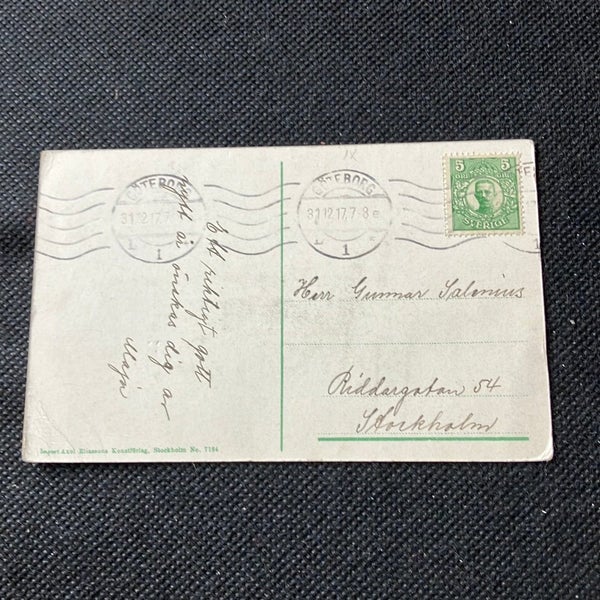 GÖTEBORG
31.12.17.7
1
GÖTEBORG
31.12.17.7-8 e
1
5 5
SVERIGE
Ett riktigt gott
nytt år önskas dig av
Maja
Herr Gunnar Salenius
Riddargatan 54
Stockholm
Import Axel Eliassons Konstförlag, Stockholm No. 7184